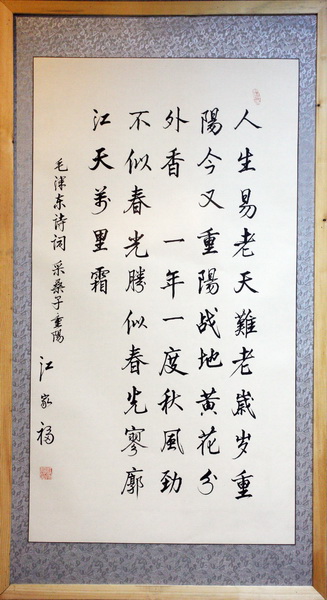 人生易老天難老歲岁重
陽今又重陽战地黃花分
外香 一年一度秋風劲
不似春光勝似春光寥廓
江天萬里霜
毛泽东诗词 采桑子重陽
江家福